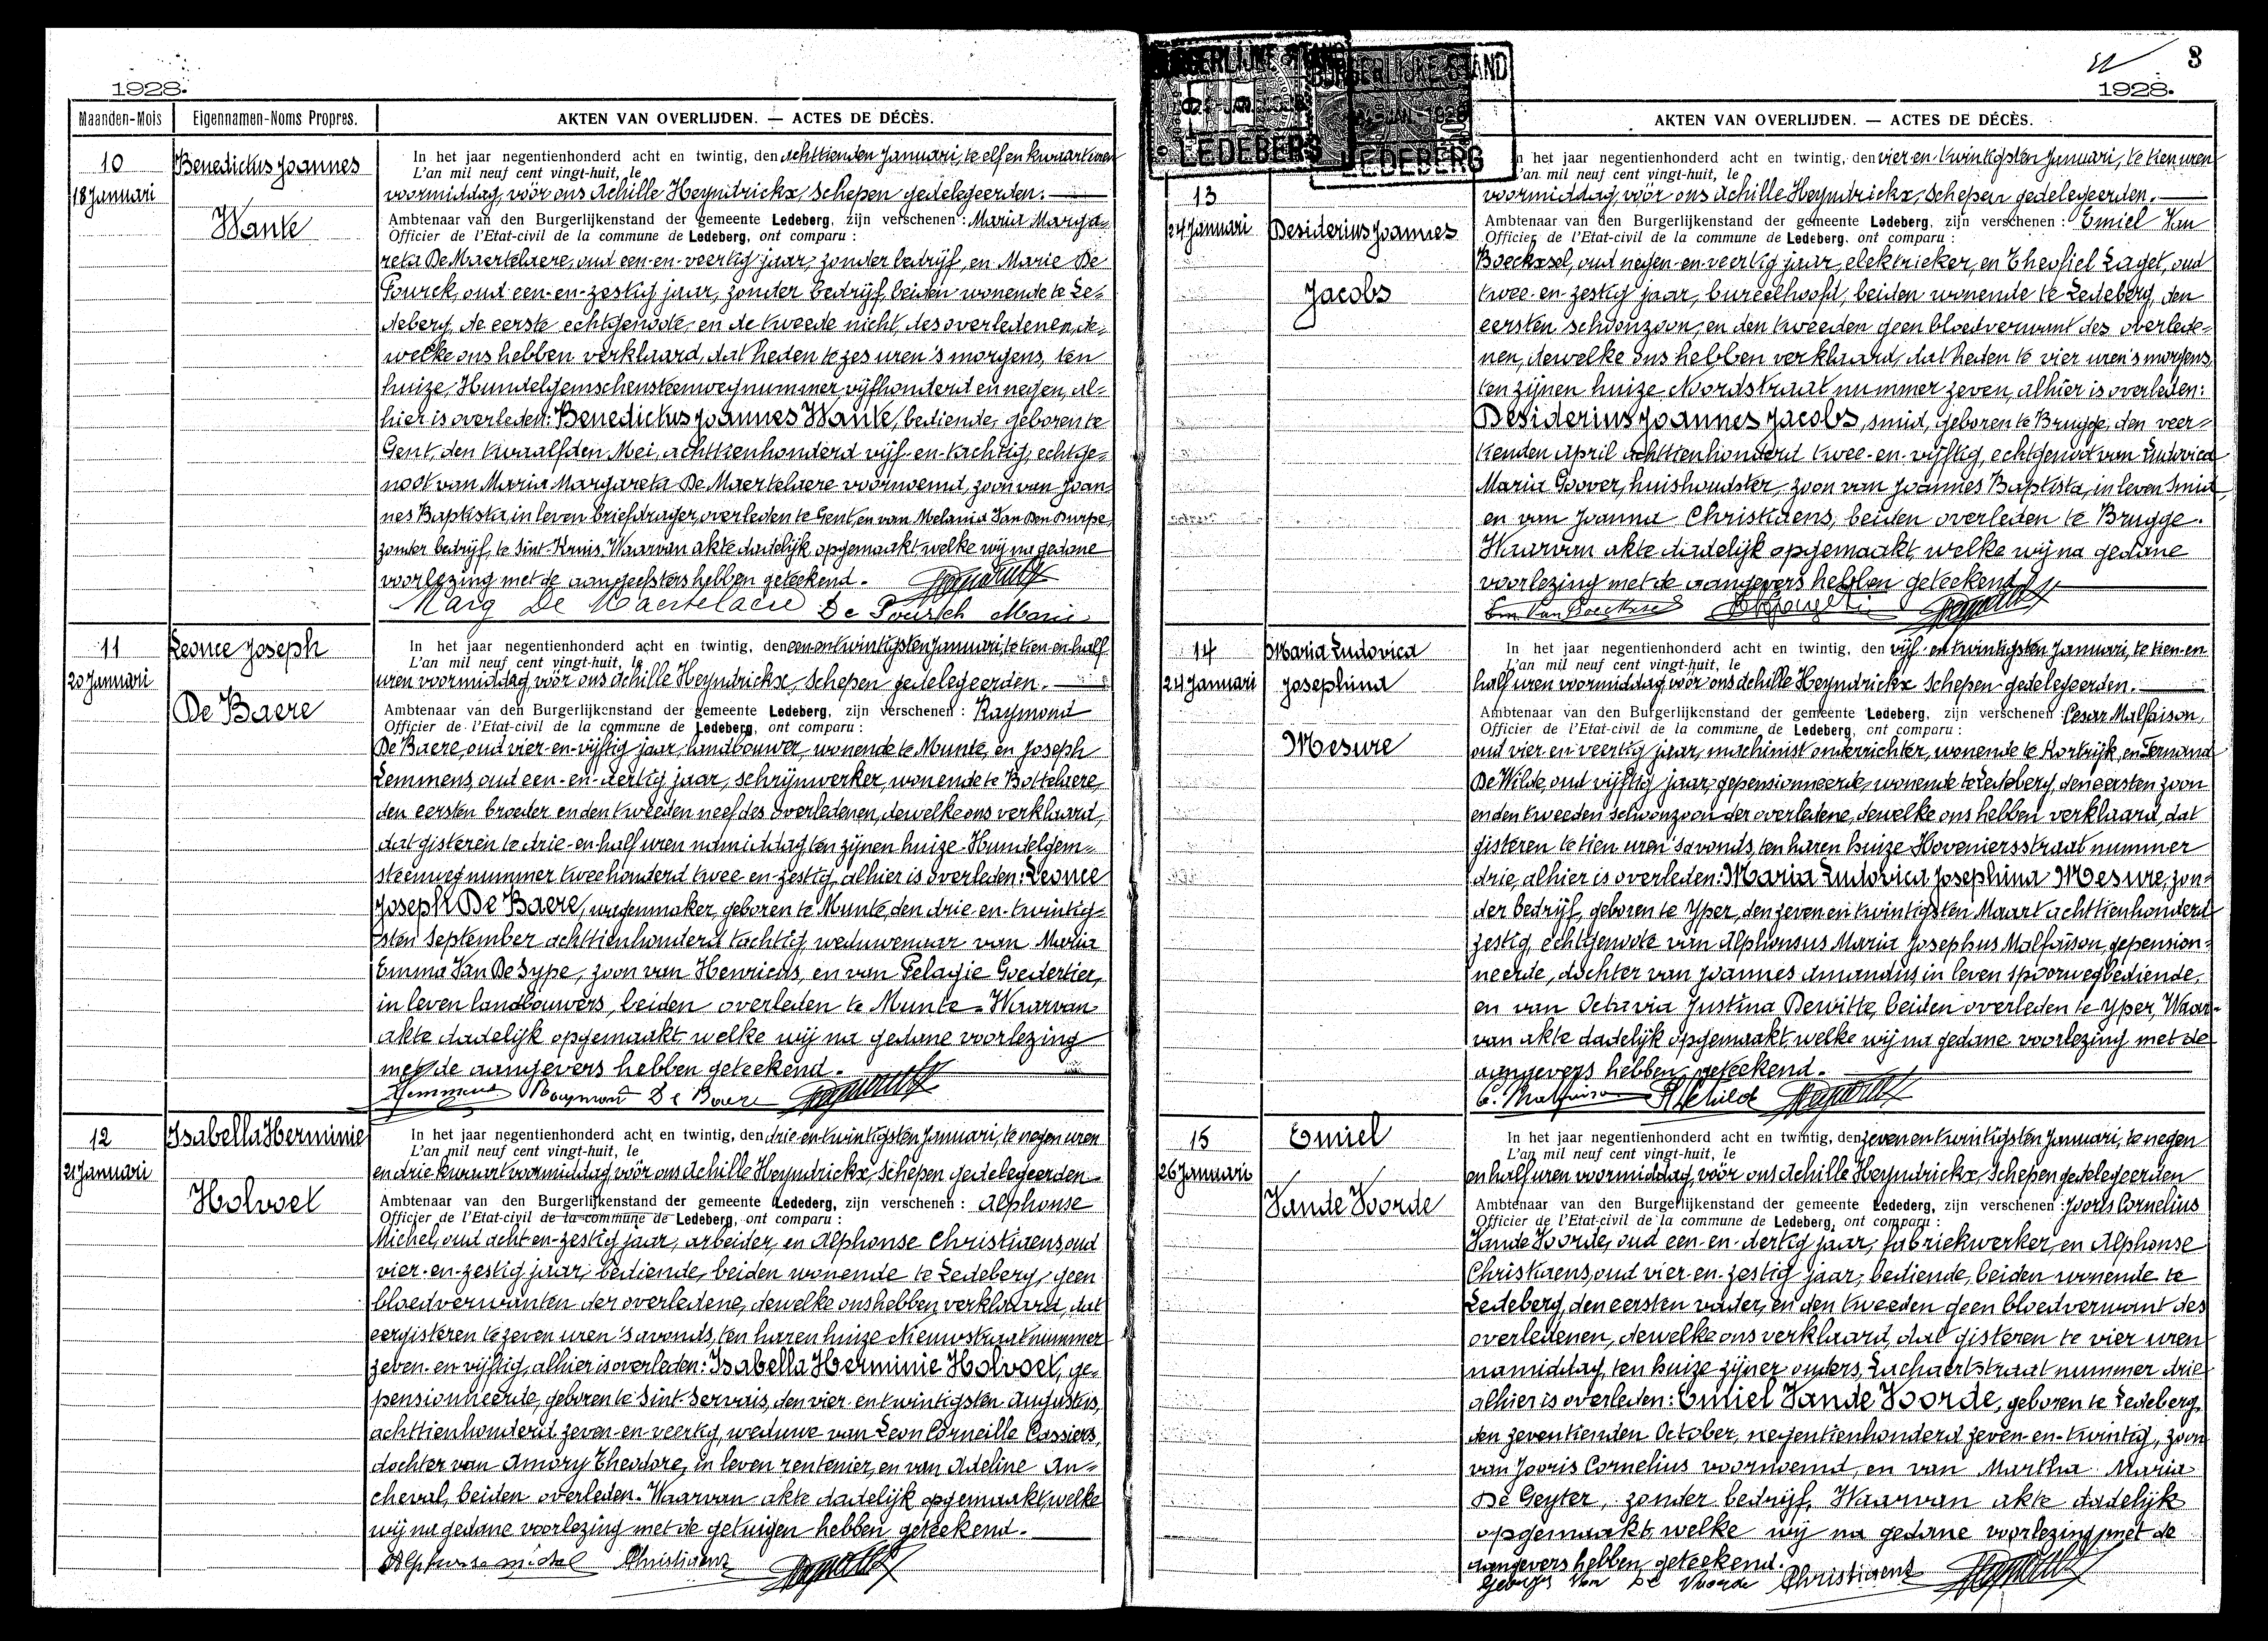 1928.
Maanden-Mois
Eigennamen-Noms Propres.
AKTEN VAN OVERLIJDEN. — ACTES DE DÉCÈS.
10
18 Januari
Benedictus Joannes
Wante
In het jaar negentienhonderd acht en twintig, den achttienden Januari, te elf en kwaart uren
L'an mil neuf cent vingt-huit, le
voormiddag, vóór ons Achille Heyndrickx, Schepen gedelegeerden.
Ambtenaar van den Burgerlijkenstand der gemeente Ledeberg, zijn verschenen : Maria Marga-
Officier de l'Etat-civil de la commune de Ledeberg, ont comparu :
reta De Maertelaere, oud een-en-veertig jaar, zonder bedrijf, en Marie De
Pourck, oud een-en-zestig jaar, zonder bedrijf, beiden wonende te Le-
deberg, de eerste echtgenoote, en de tweede nicht, des overledenen, de-
welke ons hebben verklaard, dat heden te zes uren 's morgens, ten
huize, Hundelgemschensteenweg nummer vijfhonderd en negen, al-
hier is overleden: Benedictus Joannes Wante, bediende, geboren te
Gent, den twaalfden Mei, achttienhonderd vijf-en-tachtig, echtge-
noot van Maria Margareta De Maertelaere voornoemd, zoon van Joan-
nes Baptista, in leven briefdrager, overleden te Gent, en van Melania Van Den Burpe,
zonder bedrijf, te Sint-Kruis. Waarvan akte dadelijk opgemaakt welke wij na gedane
voorlezing met de aangeefsters hebben geteekend.
Marg De Maertelaere De Pourck Marie
11
20 Januari
Leonce Joseph
De Baere
In het jaar negentienhonderd acht en twintig, den een en twintigsten Januari, te tien en half
L'an mil neuf cent vingt-huit, le
uren voormiddag, vóór ons Achille Heyndrickx, Schepen gedelegeerden.
Ambtenaar van den Burgerlijkenstand der gemeente Ledeberg, zijn verschenen : Raymond
Officier de l'Etat-civil de la commune de Ledeberg, ont comparu :
De Baere, oud vier-en-vijftig jaar, landbouwer, wonende te Munte, en Joseph
Lemmens, oud een-en-dertig jaar, schrijnwerker, wonende te Bottelaere,
den eersten broeder en den tweeden neef des overledenen, dewelke ons verklaard,
dat gisteren te drie-en-half uren namiddag, ten zijnen huize Hundelgem-
steenweg nummer tweehonderd twee en-zestig, alhier is overleden: Leonce
Joseph De Baere, wagenmaker, geboren te Munte, den drie-en-twintig-
sten September achttienhonderd tachtig, weduwenaar van Maria
Emma Van De Sype, zoon van Henricus, en van Pelagie Goedertier,
in leven landbouwers, beiden overleden te Munte. Waarvan
akte dadelijk opgemaakt welke wij na gedane voorlezing
met de aangevers hebben geteekend.
Lemmens Raymond De Baere
12
21 Januari
Isabella Herminie
Holvoet
In het jaar negentienhonderd acht en twintig, den drie en twintigsten Januari, te negen uren
L'an mil neuf cent vingt-huit, le
en drie kwaart voormiddag, vóór ons Achille Heyndrickx, Schepen gedelegeerden
Ambtenaar van den Burgerlijkenstand der gemeente Ledederg, zijn verschenen : Alphonse
Officier de l'Etat-civil de la commune de Ledeberg, ont comparu :
Michel, oud acht en-zestig jaar, arbeider, en Alphonse Christiaens, oud
vier-en-zestig jaar, bediende, beiden wonende te Ledeberg, geen
bloedverwanten der overledene, dewelke ons hebben verklaard, dat
eergisteren te zeven uren 's avonds, ten haren huize Nieuwstraat nummer
zeven-en-vijftig, alhier is overleden: Isabella Herminie Holvoet, ge-
pensionneerde, geboren te Sint-Servais, den vier-en twintigsten Augustus,
achttienhonderd zeven-en-veertig, weduwe van Leon Corneille Cassiers,
dochter van Amory Theodore, in leven rentenier, en van Adeline An-
cheval, beiden overleden. Waarvan akte dadelijk opgemaakt, welke
wij na gedane voorlezing met de getuigen hebben geteekend.
Alphonse Michel Christiaens
8
1928.
BURGERLIJKE STAND
LEDEBERG
BURGERLIJKE STAND
LEDEBERG
AKTEN VAN OVERLIJDEN. — ACTES DE DÉCÈS.
13
24 Januari
Desiderius Joannes
Jacobs
In het jaar negentienhonderd acht en twintig, den vier-en-twintigsten Januari, te tien uren
L'an mil neuf cent vingt-huit, le
voormiddag, vóór ons Achille Heyndrickx, Schepen gedelegeerden.
Ambtenaar van den Burgerlijkenstand der gemeente Ledeberg, zijn verschenen : Emiel Van
Officier de l'Etat-civil de la commune de Ledeberg, ont comparu :
Boecksel, oud negen-en-veertig jaar, elektrieker, en Theofiel Laget, oud
twee-en-zestig jaar, bureelhoofd, beiden wonende te Ledeberg, den
eersten schoonzoon, en den tweeden geen bloedverwant des overlede-
nen, dewelke ons hebben verklaard, dat heden te vier uren 's morgens,
ten zijnen huize Noordstraat nummer zeven, alhier is overleden:
Desiderius Joannes Jacobs, smid, geboren te Brugge, den veer-
tienden April achttienhonderd twee-en-vijftig, echtgenoot van Ludovica
Maria Goover, huishoudster, zoon van Joannes Baptista, in leven smid,
en van Joanna Christiaens, beiden overleden te Brugge.
Waarvan akte dadelijk opgemaakt, welke wij na gedane
voorlezing met de aangevers hebben geteekend
Em Van Boecksel
14
24 Januari
Maria Ludovica
Josephina
Mesure
In het jaar negentienhonderd acht en twintig, den vijf-en twintigsten Januari, te tien-en
L'an mil neuf cent vingt-huit, le
half uren voormiddag, vóór ons Achille Heyndrickx Schepen gedelegeerden.
Ambtenaar van den Burgerlijkenstand der gemeente Ledeberg, zijn verschenen : Cesar Malfaison,
Officier de l'Etat-civil de la commune de Ledeberg, ont comparu :
oud vier en veertig jaar, machinist onderrichter, wonende te Kortrijk, en Fernand
De Wilde, oud vijftig jaar, gepensionneerde, wonende te Ledeberg, den eersten zoon
en den tweeden schoonzoon der overledene, dewelke ons hebben verklaard, dat
gisteren te tien uren 's avonds, ten haren huize Hoveniersstraat nummer
drie, alhier is overleden: Maria Ludovica Josephina Mesure, zon-
der bedrijf, geboren te Yper, den zeven en twintigsten Maart achttienhonderd
zestig, echtgenoote van Alphonsus Maria Josephus Malfaison, gepension-
neerde, dochter van Joannes Amandus, in leven spoorwegbediende,
en van Octavia Justina Dewitte, beiden overleden te Yper, Waar-
van akte dadelijk opgemaakt, welke wij na gedane voorlezing met de
aangevers hebben geteekend.
C. Malfaison
15
26 Januari
Emiel
Vande Voorde
In het jaar negentienhonderd acht en twintig, den zeven en twintigsten Januari, te negen
L'an mil neuf cent vingt-huit, le
en half uren voormiddag, vóór ons Achille Heyndrickx, Schepen gedelegeerden
Ambtenaar van den Burgerlijkenstand der gemeente Ledederg, zijn verschenen : Jooris Cornelius
Officier de l'Etat-civil de la commune de Ledeberg, ont comparu :
Vande Voorde, oud een-en-dertig jaar, fabriekwerker, en Alphonse
Christiaens, oud vier-en-zestig jaar, bediende, beiden wonende te
Ledeberg, den eersten vader, en den tweeden geen bloedverwant des
overledenen, dewelke ons verklaard, dat gisteren te vier uren
namiddag, ten huize zijner ouders, Zachaertstraat nummer drie
alhier is overleden: Emiel Vande Voorde, geboren te Ledeberg,
den zeventienden October, negentienhonderd zeven-en-twintig, zoon
van Jooris Cornelius voornoemd, en van Martha Maria
De Geyter, zonder bedrijf, Waarvan akte dadelijk
opgemaakt, welke wij na gedane voorlezing met de
aangevers hebben geteekend.
Georges Van De Voorde Christiaens